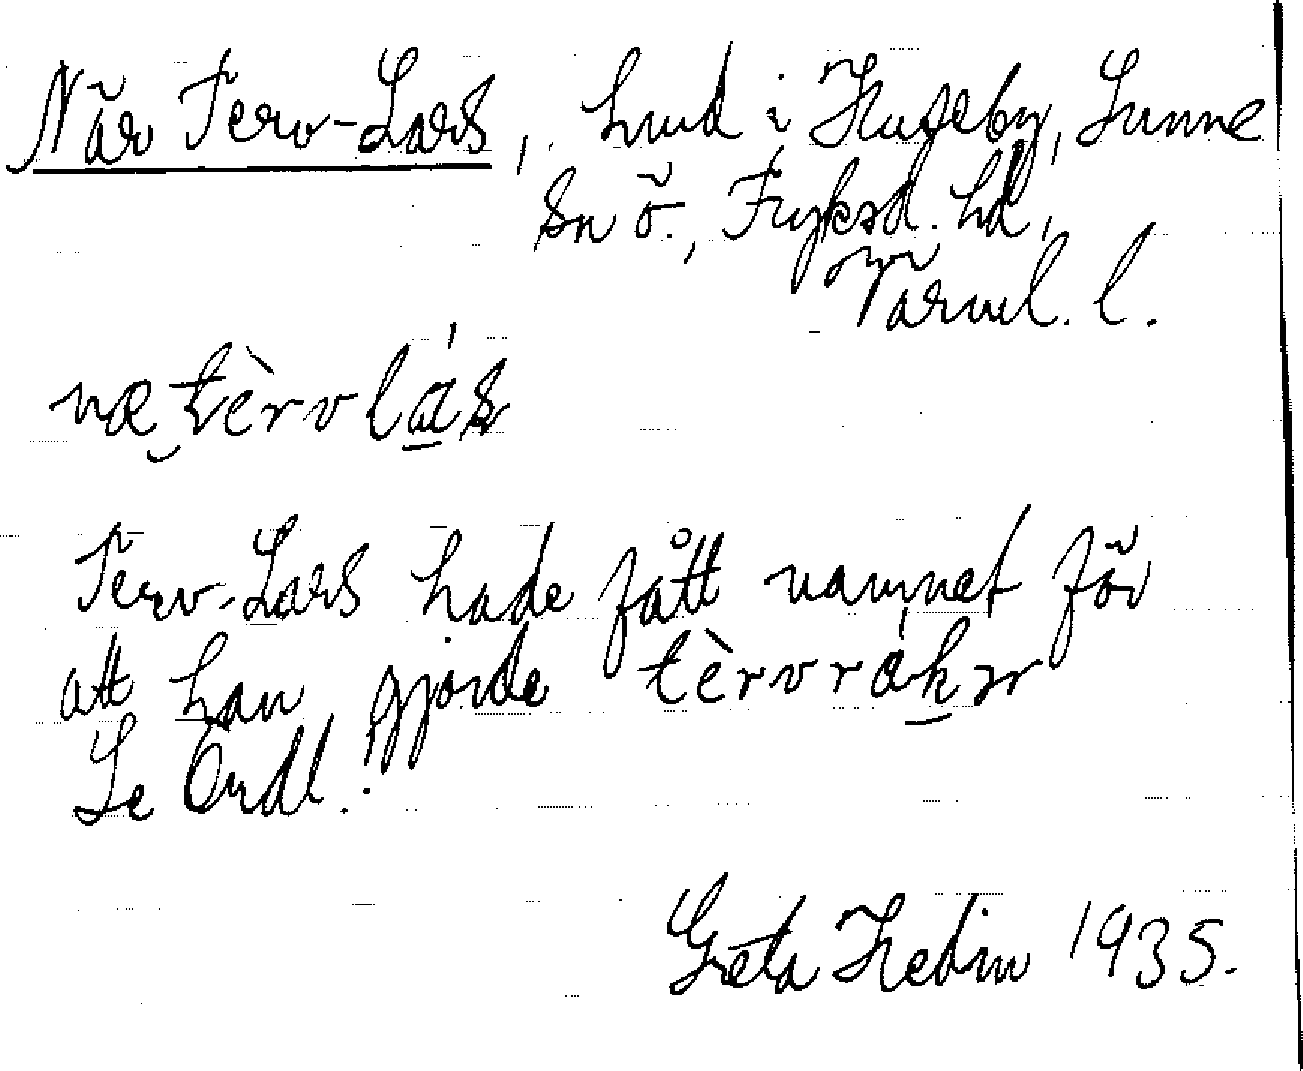 När Terv-Lars, hmd i Huseby, Sunne
sn ö., Fryksd. hd,
Värml. l.
næ tèrvlás
Terv-Lars hade fått namnet för
att han gjorde tèrvrakɤr
Se Ordl.!
Greta Hedin 1935.